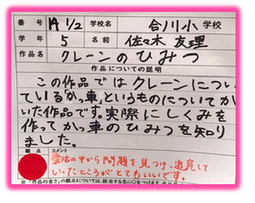 番号 14 1/2 学校名 合川小学校
学年 5 名前 佐々木 友理
作品名 クレーンのひみつ
作品についての説明
この作品ではクレーンについ
ているかっ車というものについてか
いた作品です。実際にしくみを
作ってかっ車のひみつを知り
ました。
観点 コメント
生活の中から問題を見つけ、追究して
いったところがとてもいいです。